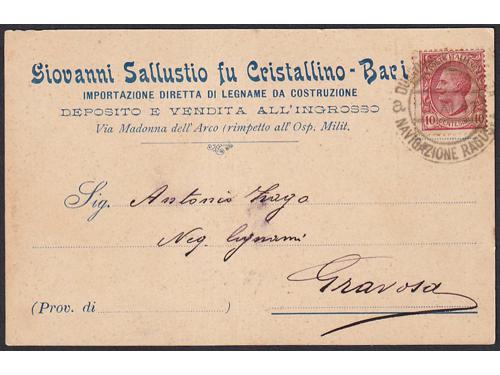 Giovanni Sallustio fu Cristallino - Bari
IMPORTAZIONE DIRETTA DI LEGNAME DA COSTRUZIONE
DEPOSITO E VENDITA ALL'INGROSSO
Via Madonna dell'Arco (rimpetto all'Osp. Milit.
10 10
NAVIGAZIONE
Sig. Antonio Zago
Neg. legnami
Gravosa
(Prov. di